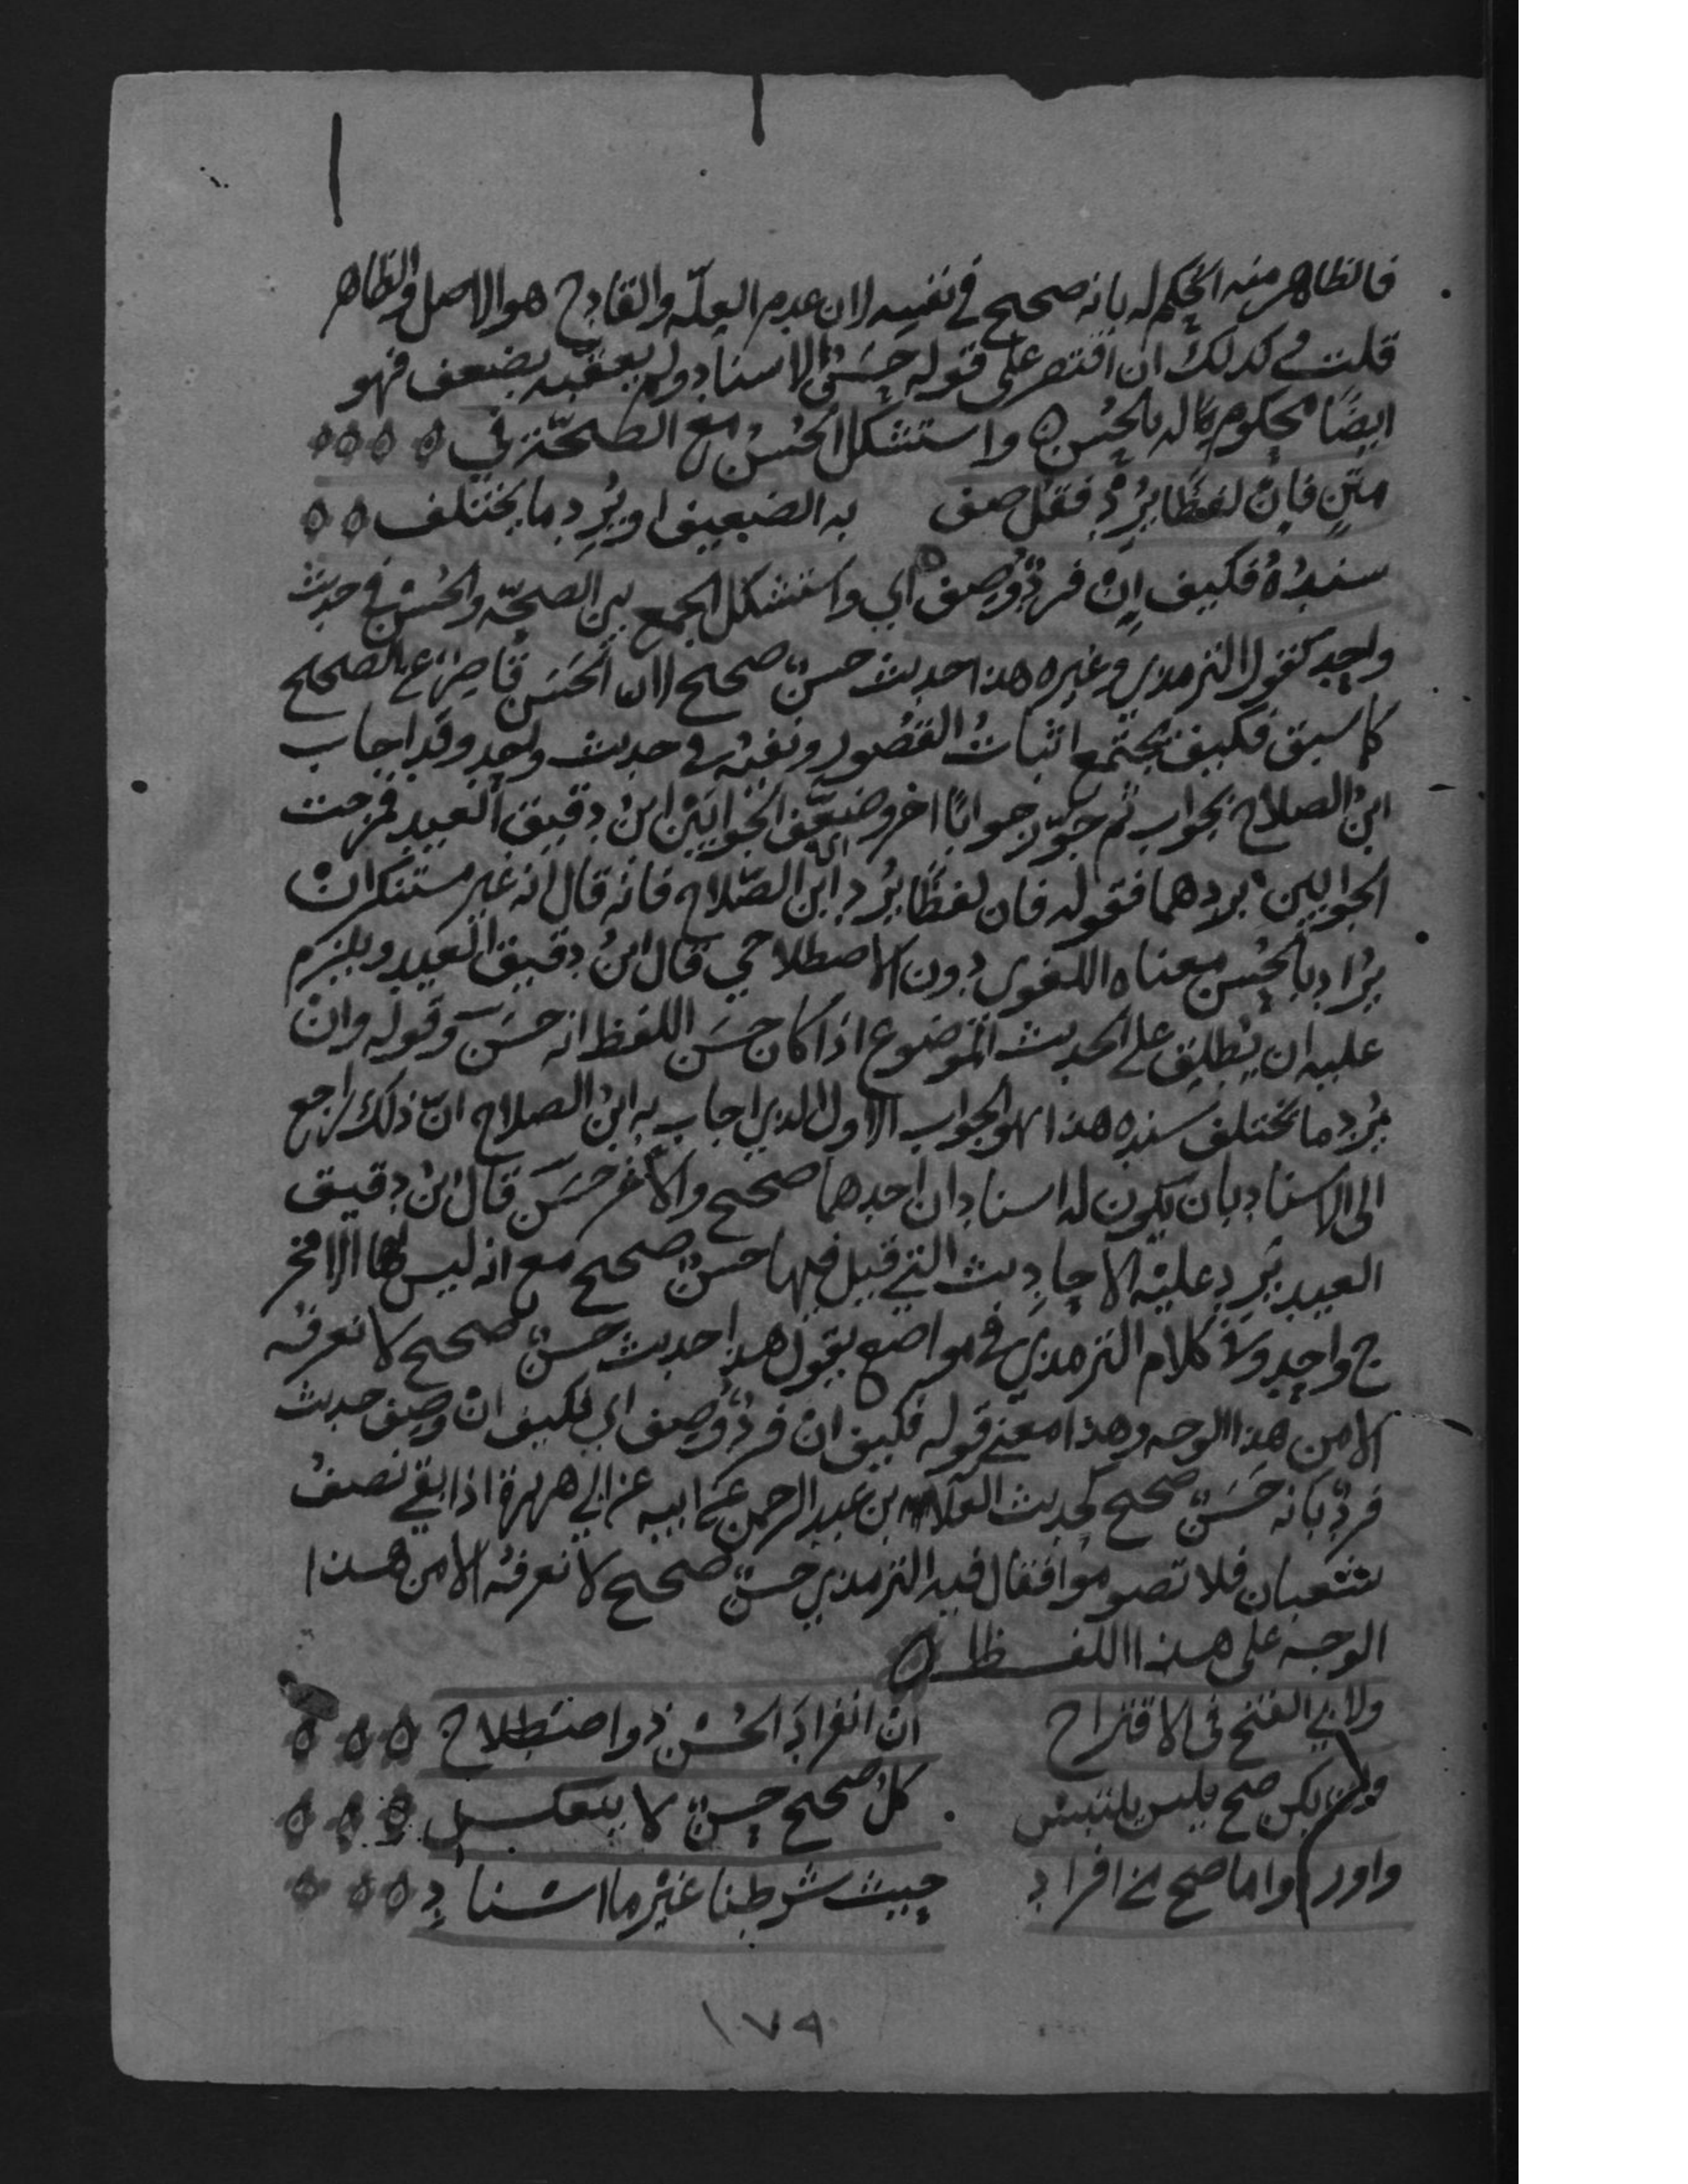 فالظاهر منه الحكم له بانه صحيح في نفسه لان عدم العلّه والقادح هو الاصل والظاهر
قلت وكذلك ان اقتصر على قوله حَسَنُ الاسناد ولم يعقبه بضعف فهو
ايضًا محكوم له بالحُسن ه واستشكل الحُسنُ مع الصحّة في
متنٍ فان لفظًا يُرِدْ فقل صف به الضعيف او يُرِد ما يختلف
سنده فكيف إن فردٌ وُصف ه اي واستشكل الجمع بين الصحّه والحُسْن في حديث
واحد كقول الترمذي وغيره هذا حديث حسنٌ صحيح لان الحَسَن قاصِرٌ عن الصحيح
كما سبق فكيف يجتمع اثباتُ القصُور ونفيُه في حديث واحد وقد اجاب
ابنُ الصلاح بجواب ثم جوّز جوابًا اخر وضعّف الجوابَيْن ابنُ دقيق العيد فمزجت
الجوابين بردهما فقوله فان لفظًا يُرد اي ابن الصّلاح فانه قال انه غير مستنكر ان
يُرَاد بالحُسن معناه اللغوي دون الاصطلاحي قال ابنُ دقيق العيد ويلزم
عليه ان يُطلِق على الحديث الموضوع اذا كان حسَن اللفظ انه حَسَن وقوله وان
يُرد ما يختلف سنده هذا هو الجواب الاول الذي اجاب به ابنُ الصلاح انّ ذلك راجع
الى الاسناد بان يكون له اسنادان احدهما صحيح والآخر حَسَن قال ابنُ دقيق
العيد يَرِد عليْه الاحاديث التي قيل فيها حسنٌ صحيح مع انه ليس لها الا مخر
ج واحد وفي كلام الترمذي في مواضع يقول هذا حديث حسنٌ صحيح لا نعرفه
الا من هذا الوجه وهذا معنى قوله فكيف ان فردٌ وُصِف اي فكيف انْ وُصِف حديث
فردٌ بانه حَسَنٌ صحيح كحديث العلاء بن عبد الرحمن عن ابيه عن ابي هريرة اذا بقي نصفُ
شعبان فلا تصوموا فقال فيه الترمذي حسنٌ صحيح لا نعرفُه الا من هذا
الوجه على هذا اللفظ ه
ولابي الفتح في الاقتراح انّ انفرادَ الحُسْن ذو اصْطِلاح
وان يكن صح فليس يلتبس كلّ صحيح حسنٌ لا ينعكس
واوردوا ما صح من افراد حيث شرطنا غيْر ما اسْنادِ
١٧٩